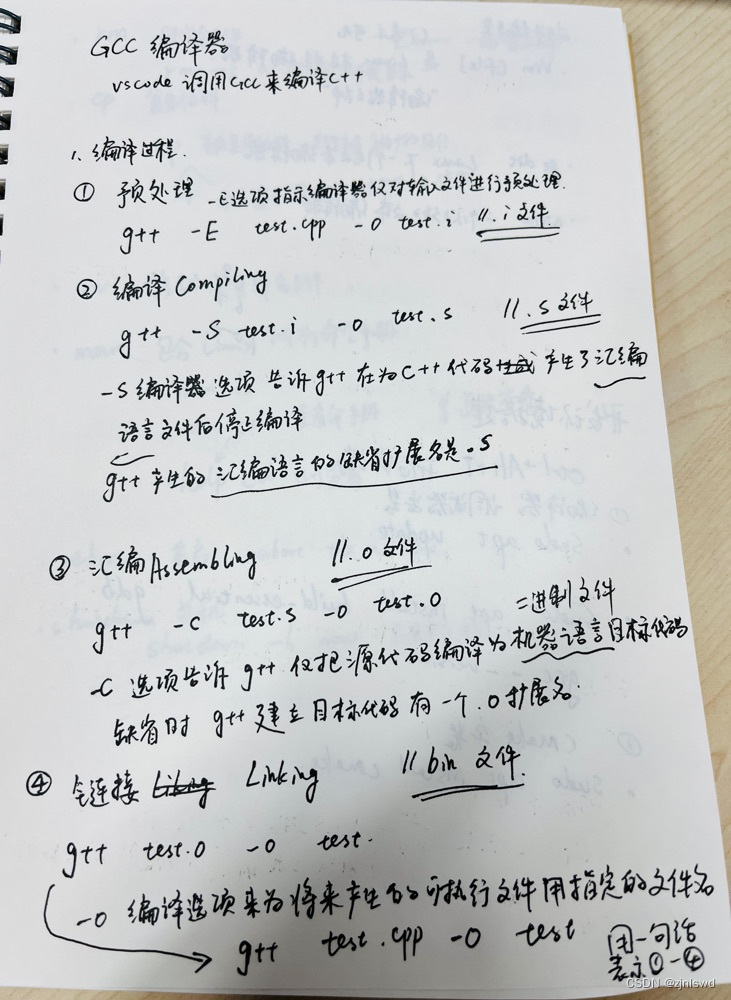 GCC 编译器
vscode 调用GCC来编译C++
1. 编译过程.
① 预处理 -E选项指示编译器仅对输入文件进行预处理.
g++ -E test.cpp -o test.i //.i文件
② 编译 Compiling
g++ -S test.i -o test.s //.s文件
-S 编译器选项 告诉g++ 在为C++代码 产生了汇编
语言文件后停止编译
g++ 产生的汇编语言的缺省扩展名是.s
③ 汇编 Assembling //.o文件
g++ -c test.s -o test.o 二进制文件
-c 选项告诉 g++ 仅把源代码编译为机器语言目标代码
缺省时 g++ 建立目标代码有一个.o扩展名.
④ 链接 Linking // bin 文件
g++ test.o -o test.
-o 编译选项来为将来产生的可执行文件用指定的文件名
g++ test.cpp -o test 用一句话
表示①-④
CSDN @zjnlswd